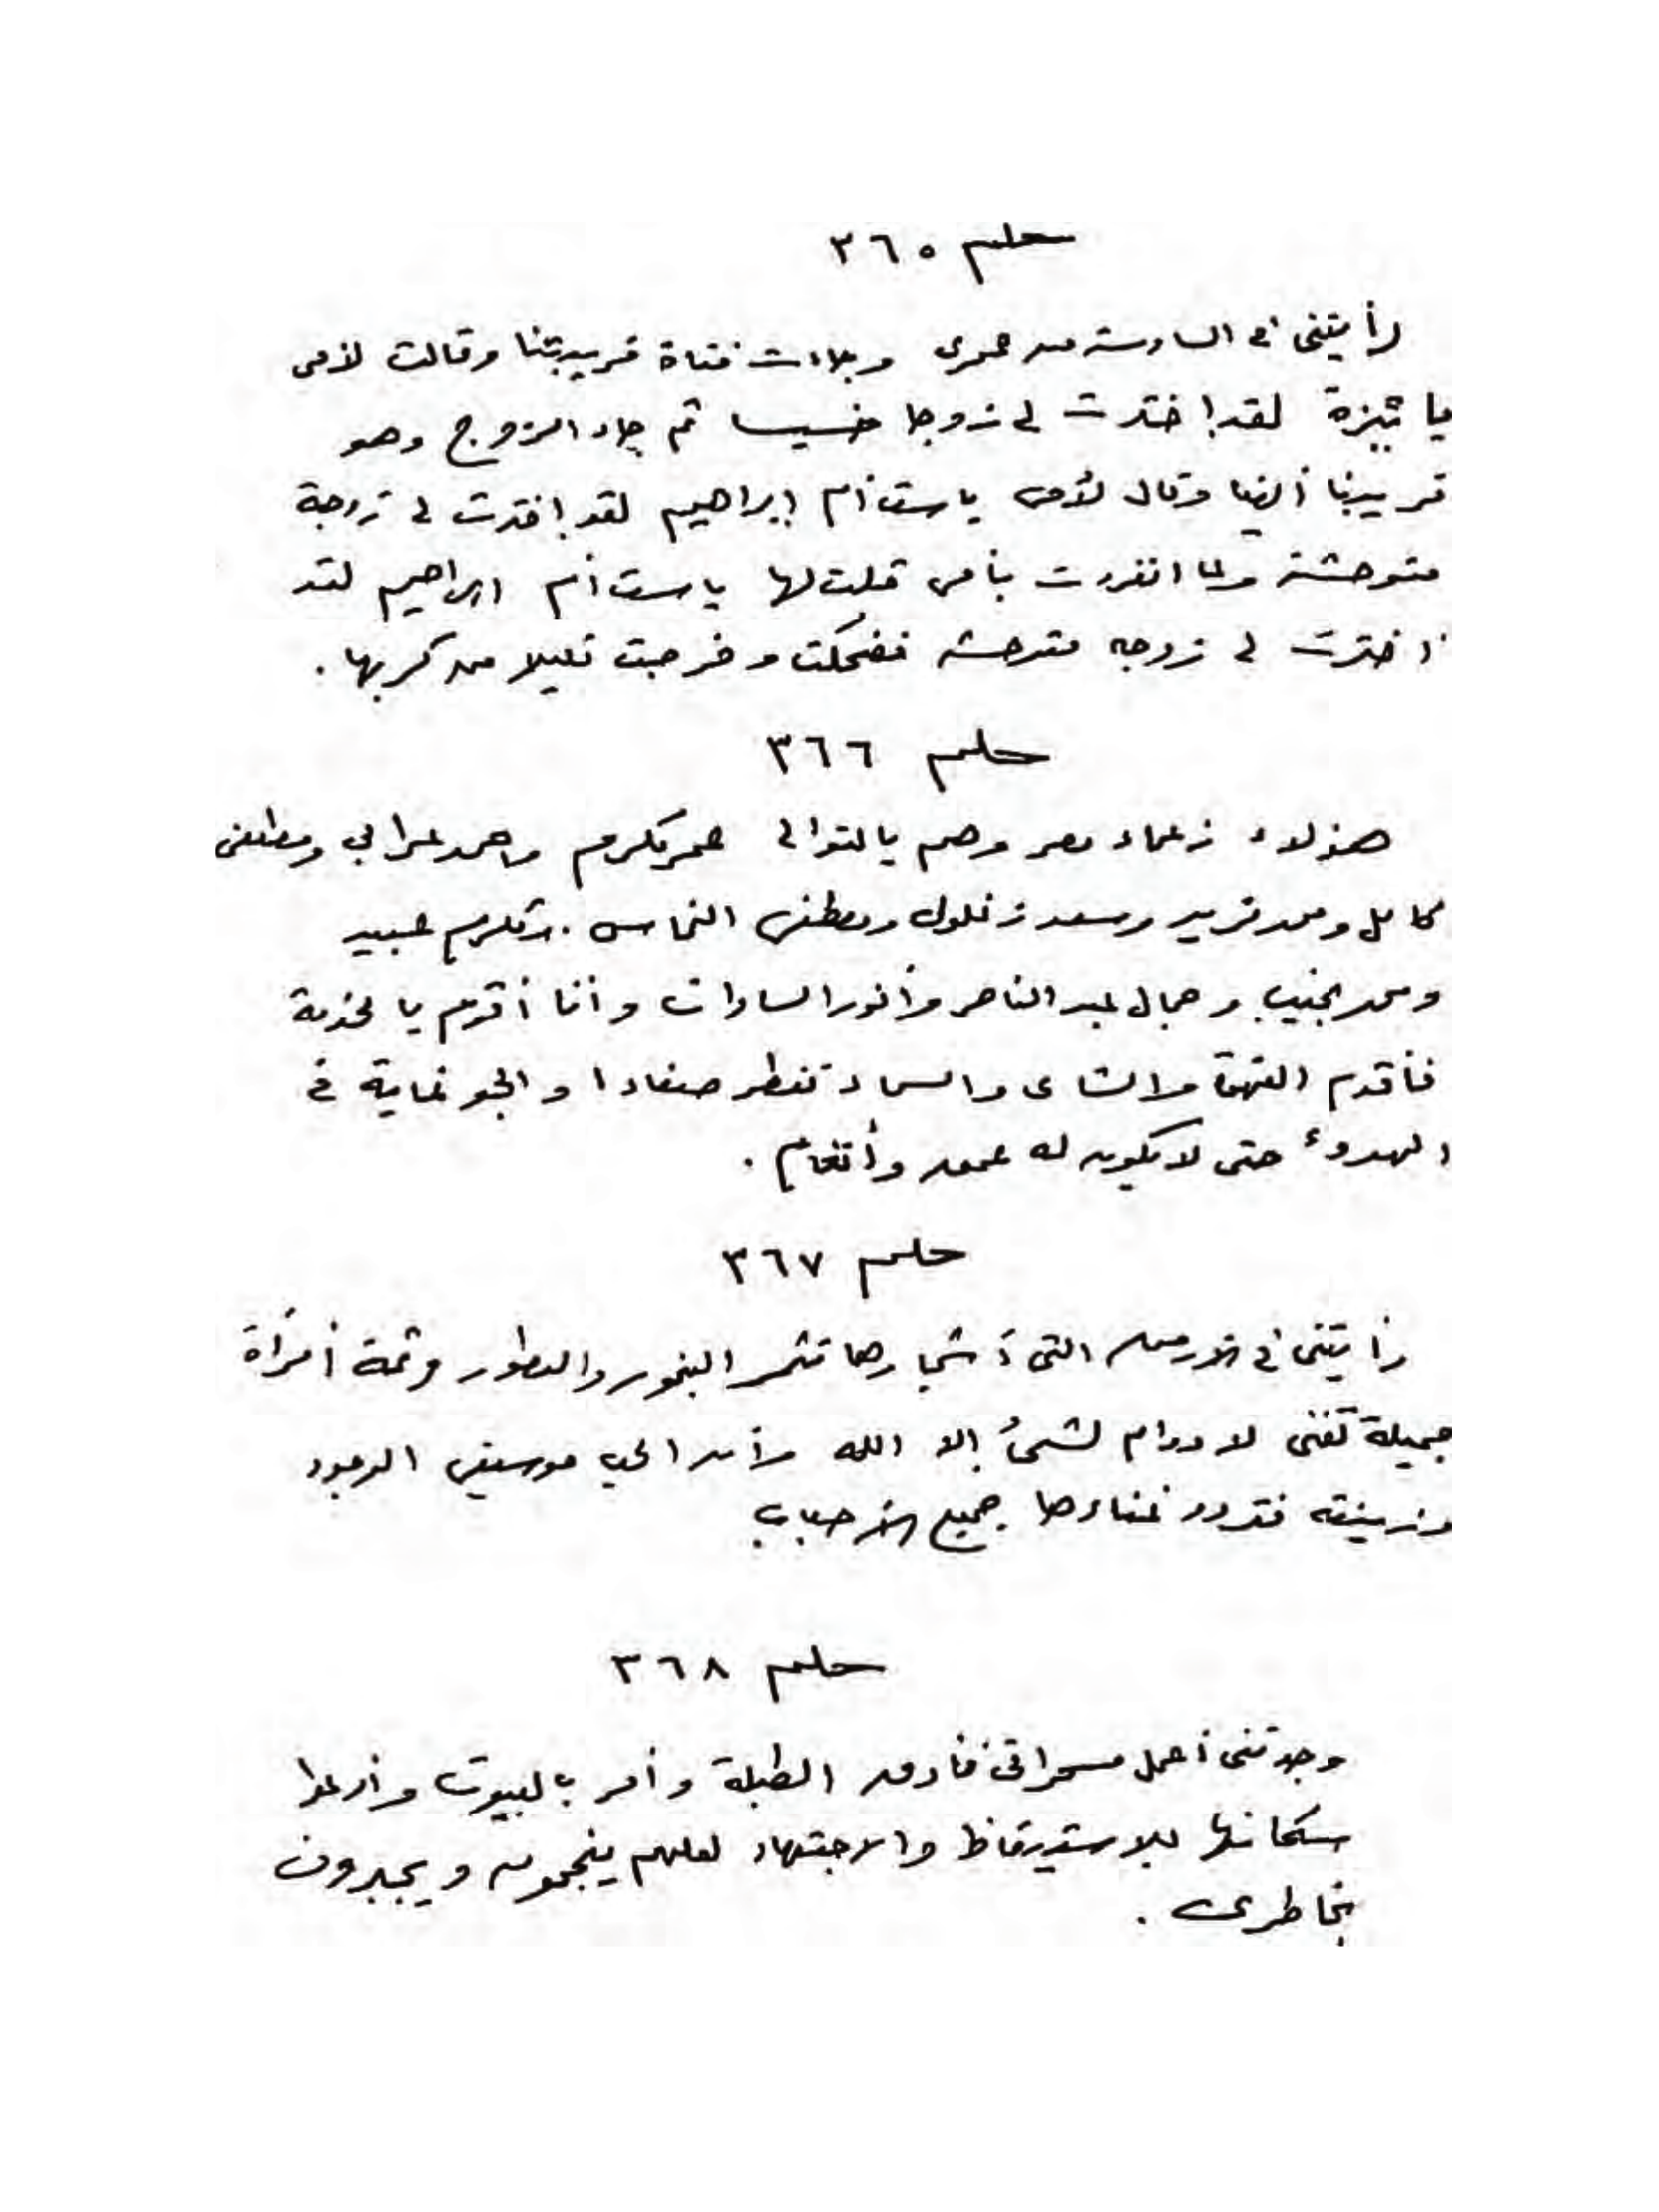 حلم ٣٦٥
رأيتنى فى السادسة من عمرى وجاءت فتاة قريبتنا وقالت لأمى
يا تيزة لقد اخترت لى زوجا خسيسا ثم جاء الزوج وهو
قريبنا أيضا وقال لأمى يا ست أم إبراهيم لقد اخترت لى زوجة
متوحشة ولما انفردت بأمى قلت لها يا ست أم ابراهيم لقد
اخترت لى زوجه متوحشه فضحكت وخرجت قليلا من كربها .
حلم ٣٦٦
هؤلاء زعماء مصر وهم بالتوالى عمر مكرم واحمد عرابي ومصطفى
كامل ومحمد فريد وسعد زغلول ومصطفى النحاس . ومكرم عبيد
ومحمد نجيب وجمال عبد الناصر وأنور السادات وأنا أقوم بالخدمة
فأقدم القهوة والشاى والسماء تمطر صفاءا والجو غاية فى
الهدوء حتى لا يكون له عمق وأنغام .
حلم ٣٦٧
رأيتنى فى الأرض التى أشجارها تثمر البخور والعطور وثمة أمرأة
جميلة تغنى لا دوام لشئ إلا الله وأن الحب موسيقى الوجود
وزينته فتردد غناءها جميع الأحباب
حلم ٣٦٨
وجدتنى أعمل مسحراتى فأدق الطبلة وأمر بالبيوت وأدعوا
سكانها للاستيقاظ والاجتهاد لعلهم ينجحون ويجبرون
بخاطرى .